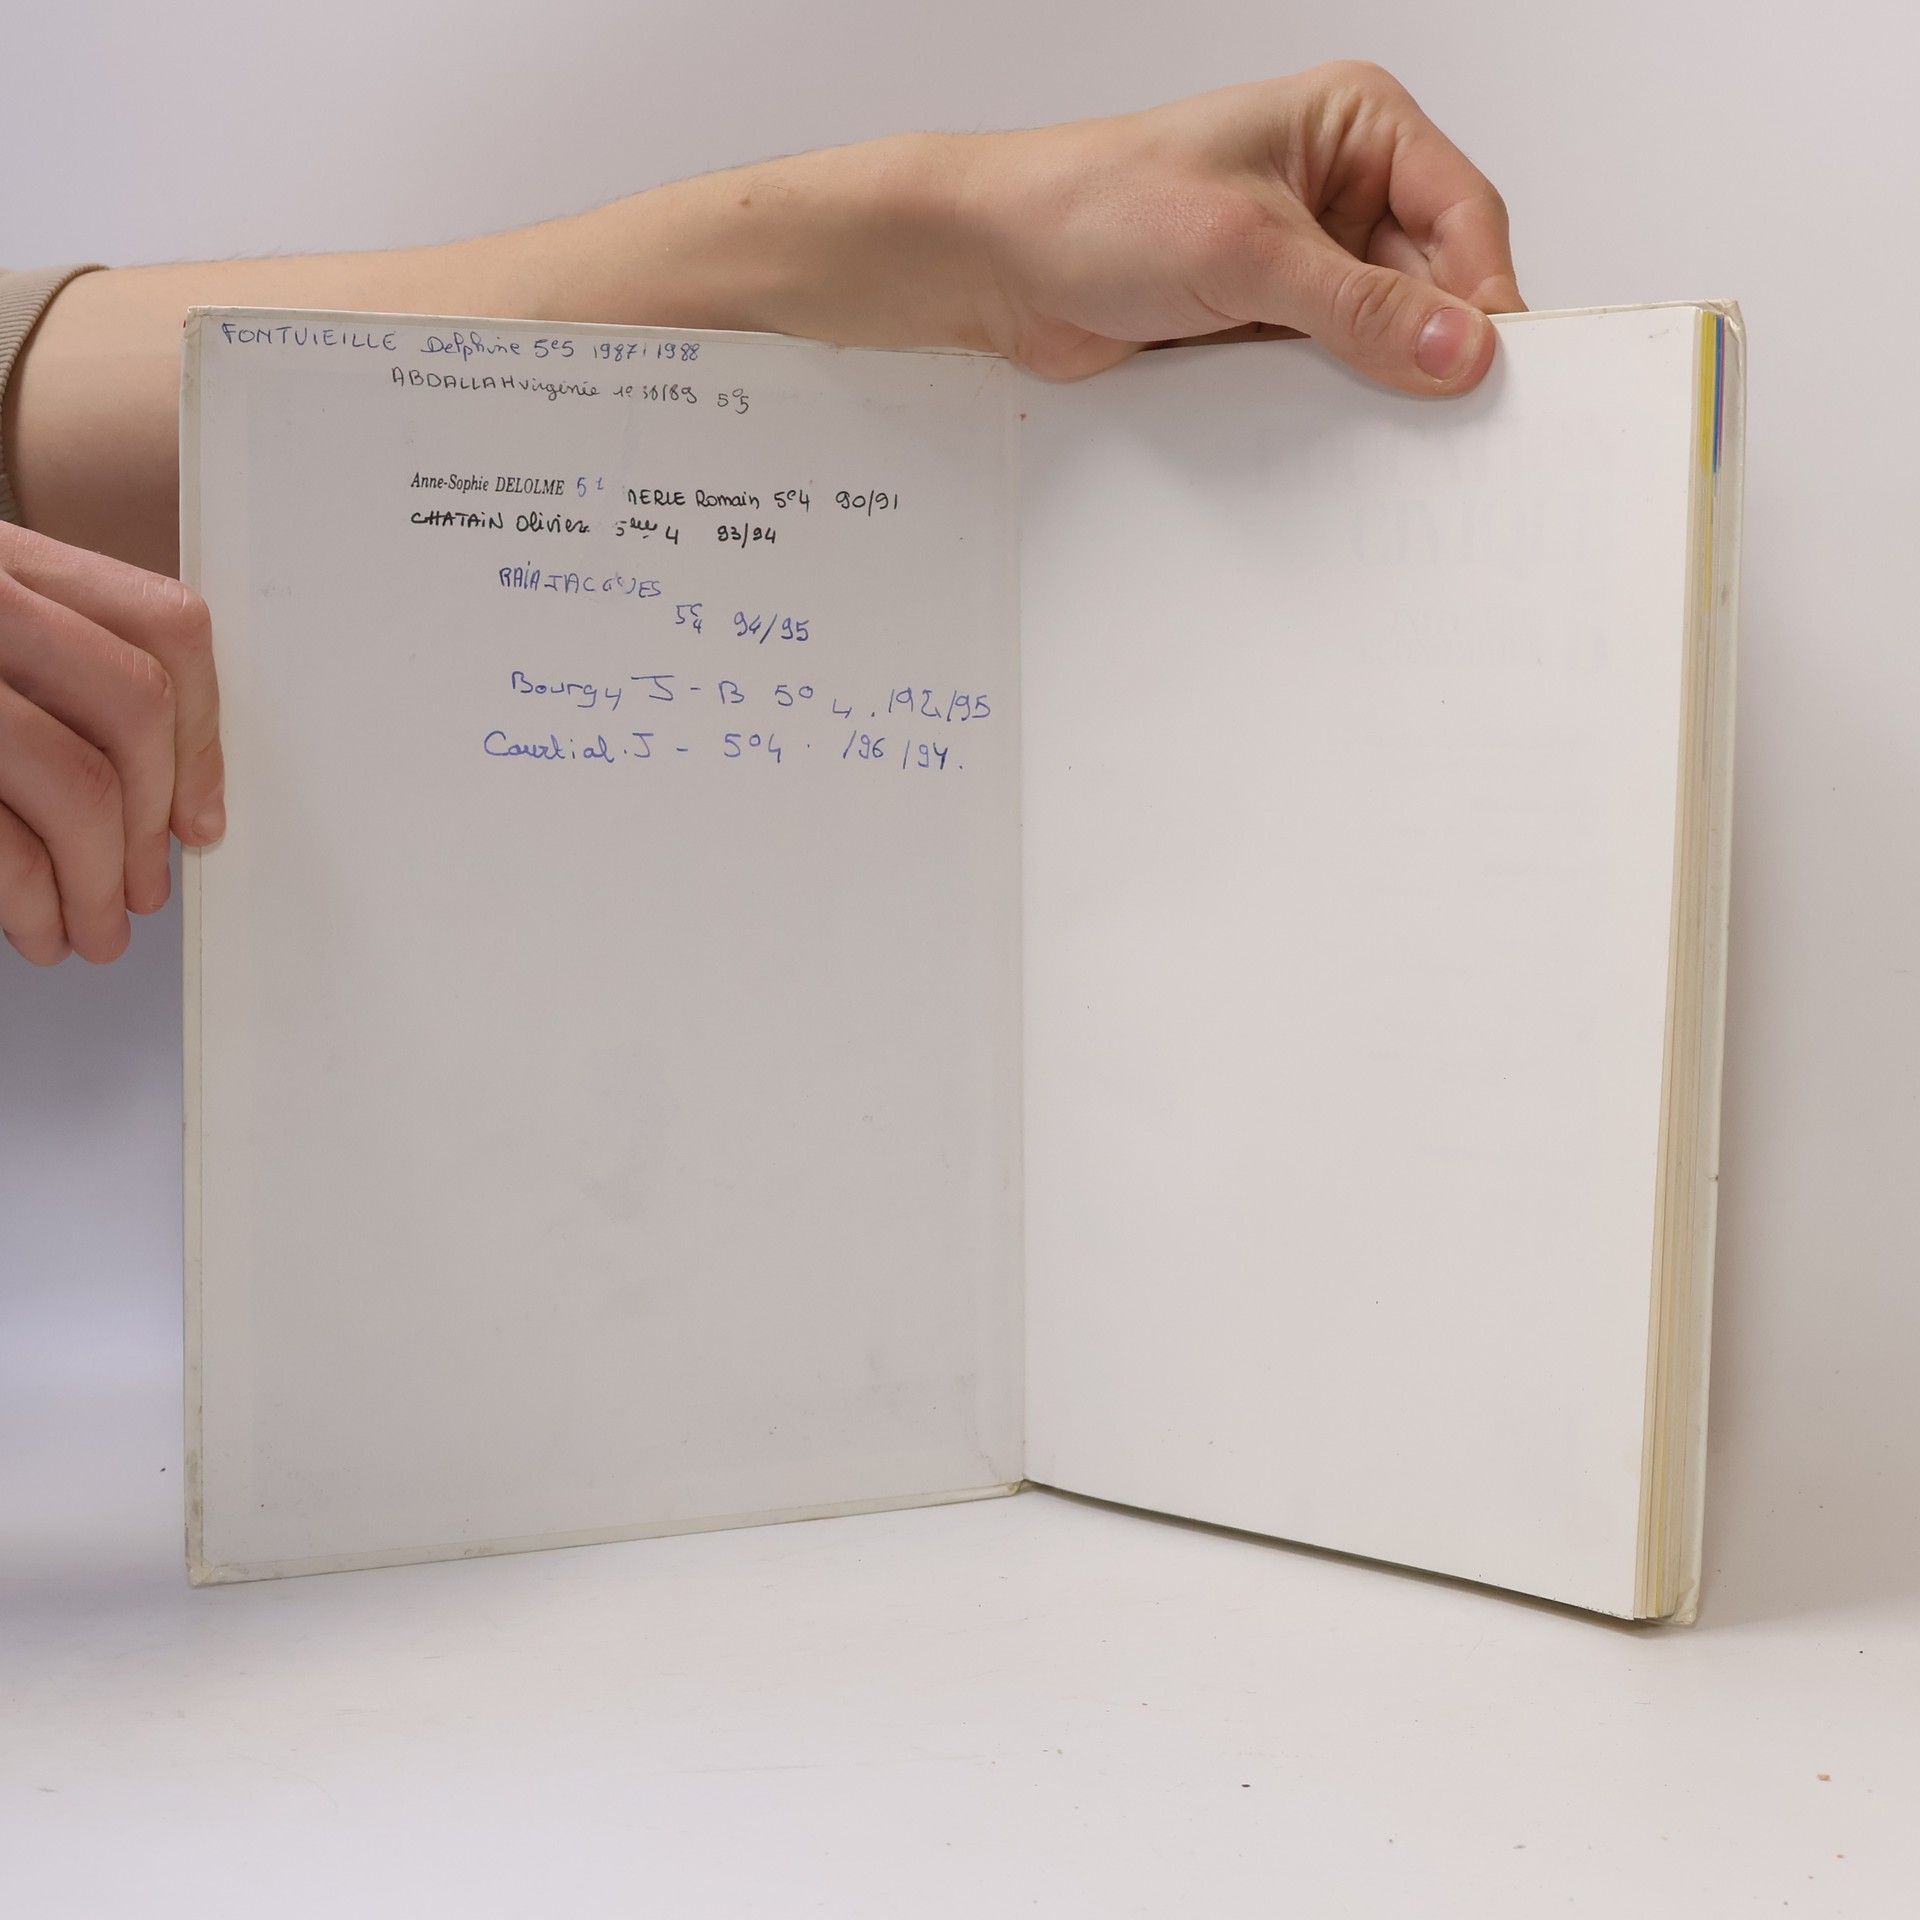 FONTVIEILLE Delphine 5e5 1987/1988
ABDALLAH Virginie 1988/89 5e5
Anne-Sophie DELOLME 5 1 MERLE Romain 5e4 90/91
CHATAIN Olivier 5ème 4 93/94
JACQUES
5e4 94/95
Bourgy J-B 5° 4. /95
Courtial.J - 5°4. /96 /94.